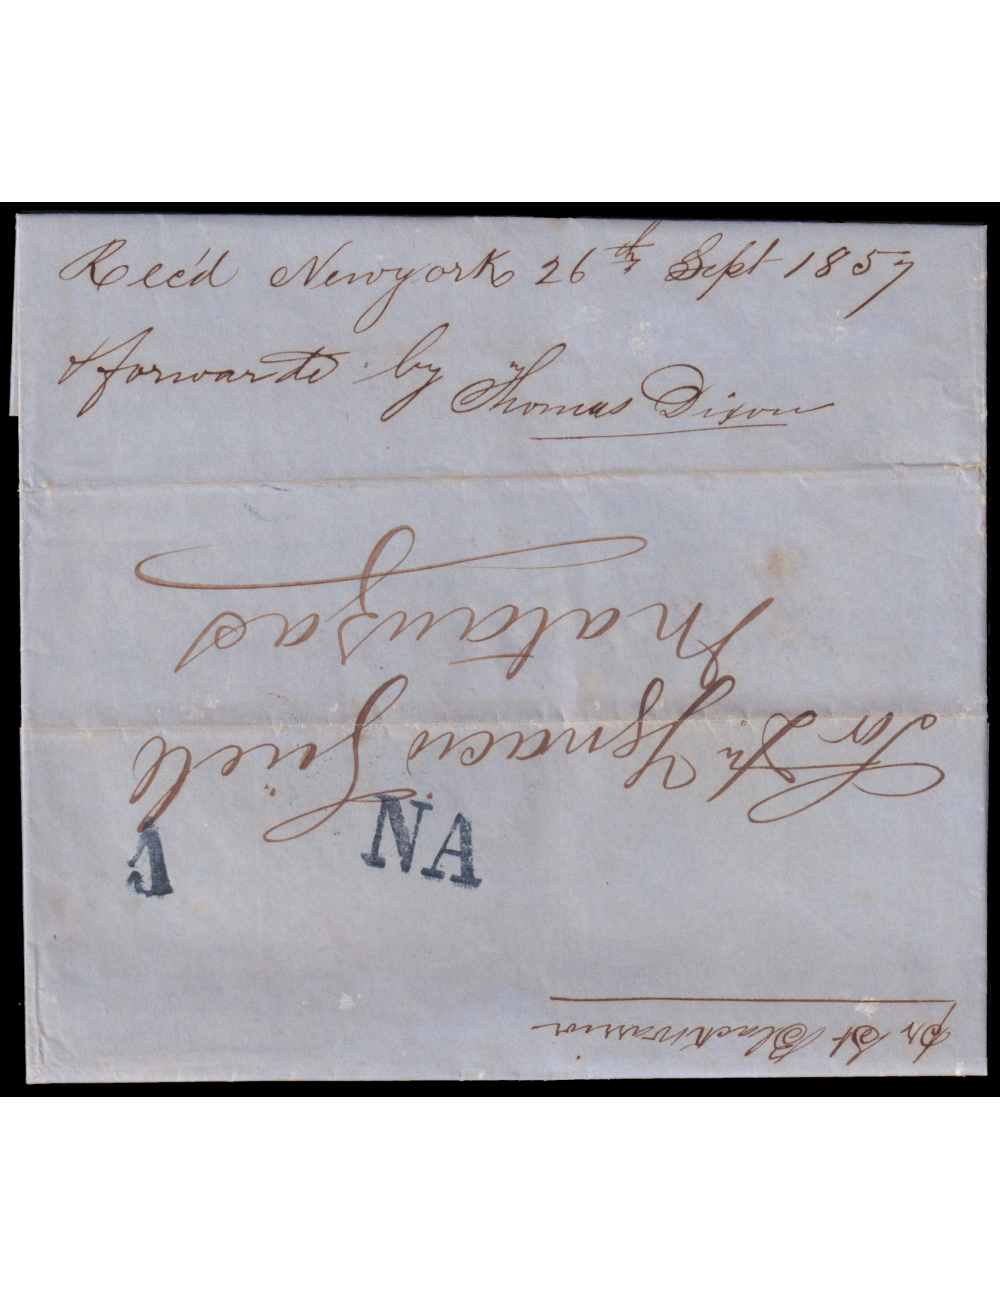 Rec'd Newyork 26th Sept 1857
& forwarde by Thomas Dixon
pr St Blackwarrior
NA
1
Sor Dn Ygnacio Güell
Matanzas